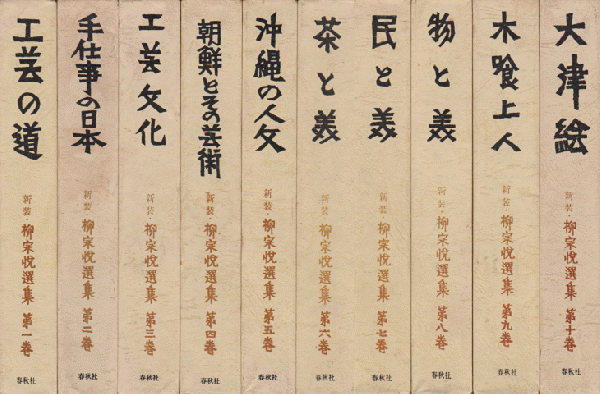 工芸の道
新装・柳宗悦選集 第一巻
春秋社
手仕事の日本
新装・柳宗悦選集 第二巻
春秋社
工芸文化
新装・柳宗悦選集 第三巻
春秋社
朝鮮とその芸術
新装・柳宗悦選集 第四巻
春秋社
沖縄の人文
新装・柳宗悦選集 第五巻
春秋社
茶と美
新装・柳宗悦選集 第六巻
春秋社
民と美
新装・柳宗悦選集 第七巻
春秋社
物と美
新装・柳宗悦選集 第八巻
春秋社
木喰上人
新装・柳宗悦選集 第九巻
春秋社
大津絵
新装・柳宗悦選集 第十巻
春秋社